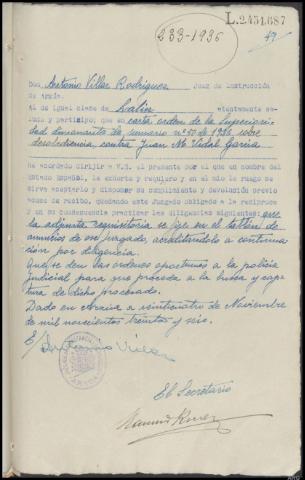 L.2451.687
233-1936
49
Don Antonio Villar Rodriguez Juez de Instrucción
de Arzúa.
Al de igual clase de Lalín atentamente sa-
luda y participo; que en carta orden de la Superiori-
dad dimanante de sumario nº 50 de 1936 sobre
desobediencia, contra Juan Mº Vidal Garcia
ha acordado dirijir a V.S. el presente por el que en nombre del
Estado Español, le exhorto y requiero y en el mio le ruego se
sirva aceptarlo y disponer su cumplimiento y devolución previo
acuse de recibo, quedando este Juzgado obligado a la recíproca
y en su consecuencia practicar las diligencias siguientes: que
la adjunta requisitoria se fije en el tablón de
anuncios de ese Juzgado, acreditándolo a continua-
ción por diligencia.
Que se den las ordenes oportunas a la policia
judicial para que proceda a la busca y cap-
tura de dicho procesado.
Dado en Arzúa a veinticuatro de Noviembre
de mil novecientos treinta y seis.
E/
Antonio Villar
El Secretario